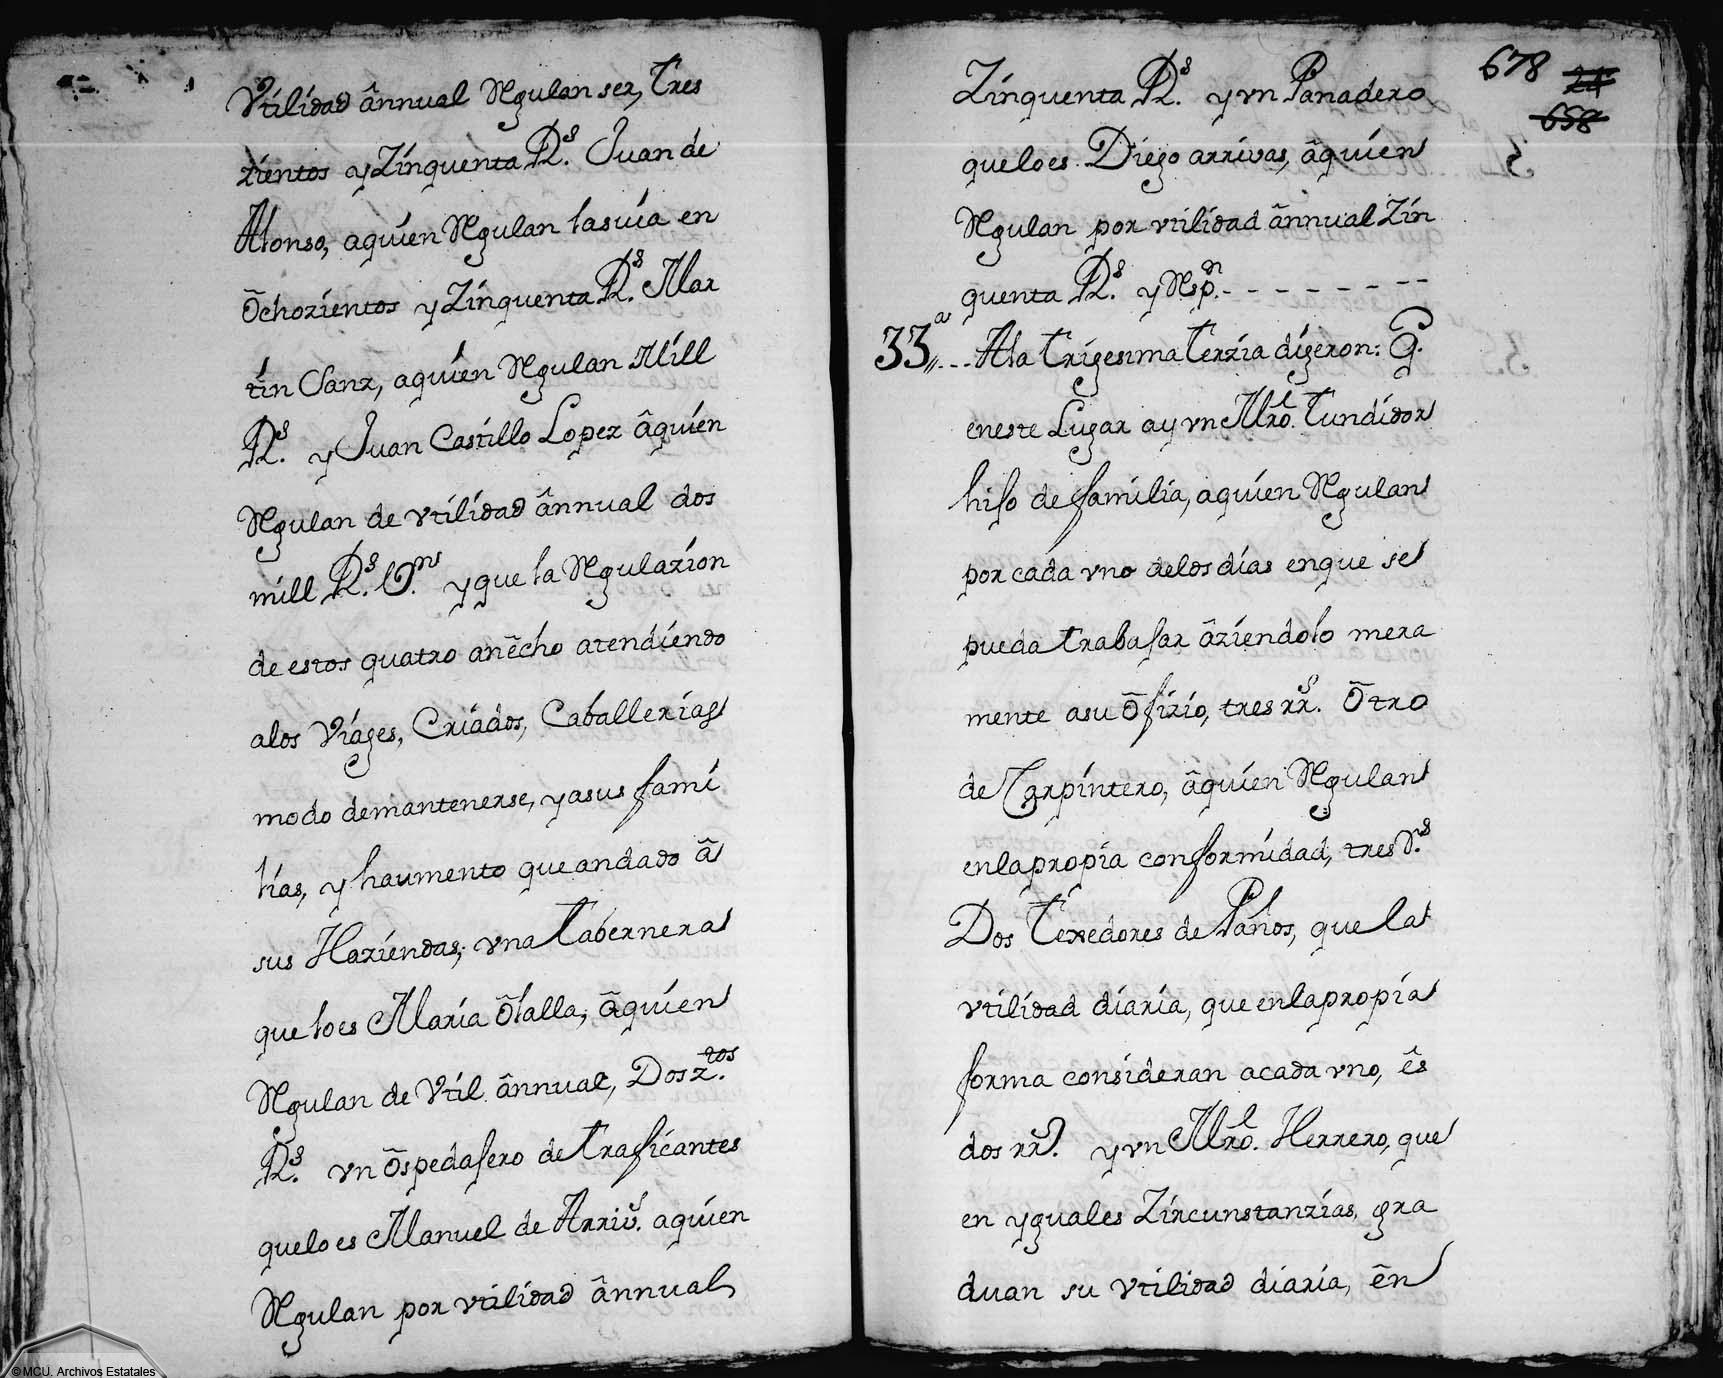 Vtilidad ânnual Regulan ser, Tres
zientos y Zinquenta R.s Juan de
Alonso, aquien Regulan lasuia en
Õchozientos y Zinquenta R.s Mar
tin Sanz, aquien Regulan Mill
R.s y Juan Castillo Lopez âquien
Regulan de vtilidad ânnual dos
mill R.s V.n y que la Regulazion
de estos quatro an ẽcho atendiendo
alos Viages, Criados, Caballerias
modo demantenerse, yasus fami
lias, y haumento queandado â
sus Haziendas; vna Tabernera
que loes Maria Õlalla, âquien
Regulan de Vtil ânnual, Dosz.tos
R.s vn õspedasero de traficantes
queloes Manuel de Arriv.s aquien
Regulan por vtilidad ânnual
678
24
658
Zinquenta R.s y vn Panadero
queloes Diego arrivas, âquien
Regulan por vtilidad ânnual Zin
quenta R.s y Resp.n - - - - - - - -
33,,a... Ala Trigesima Terzia digeron: Q.
eneste Lugar ay vn Mro. Tundidor
hiso de familia, aquien Regulan
por cada vno delos dias enque se
pueda trabasar âziendolo mera
mente asu Õfizio, tres rr.s Õtro
de Carpintero, âquien Regulan
enlapropia conformidad, tres R.s
Dos Texedores de Paños, que la
vtilidad diaria, que enlapropia
forma consideran acada vno, ês
dos rr.s y vn Mro. Herrero, que
en yguales Zircunstanzias, gra
duan su vtilidad diaria, ên
© MCU. Archivos Estatales